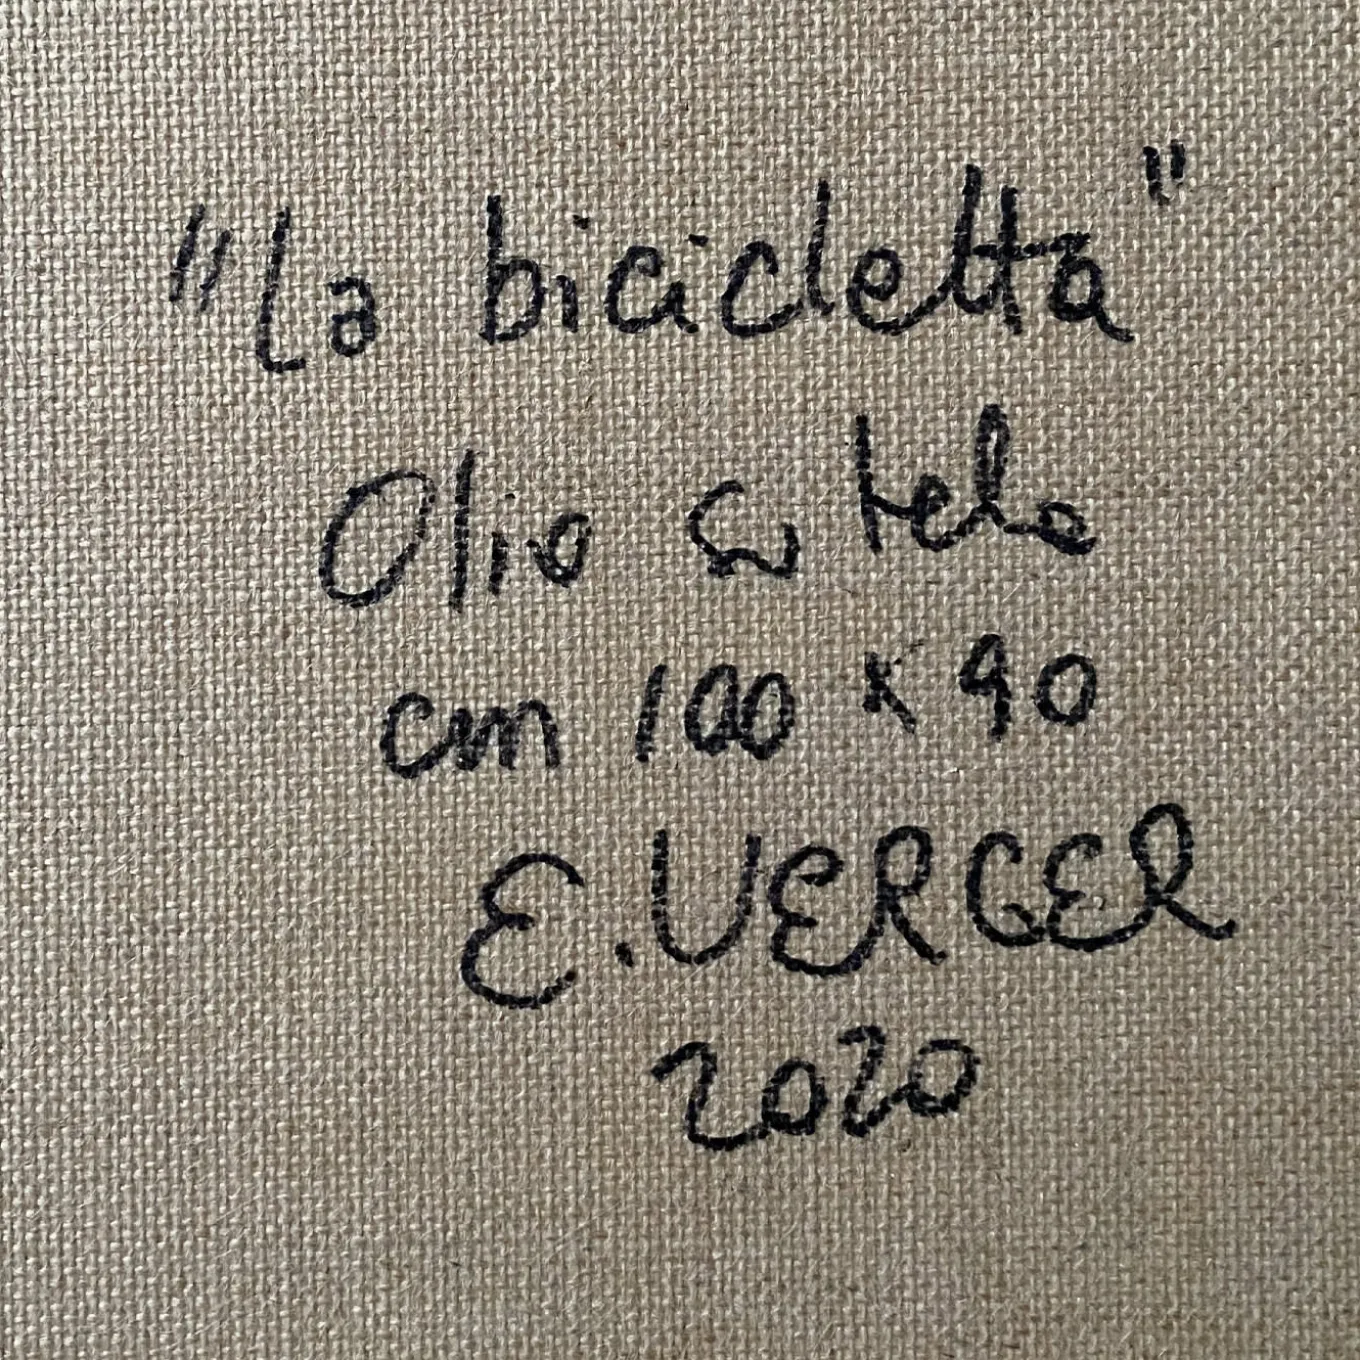 "La bicicletta"
Olio su tela
cm 100 x 90
E. VERGER
2020